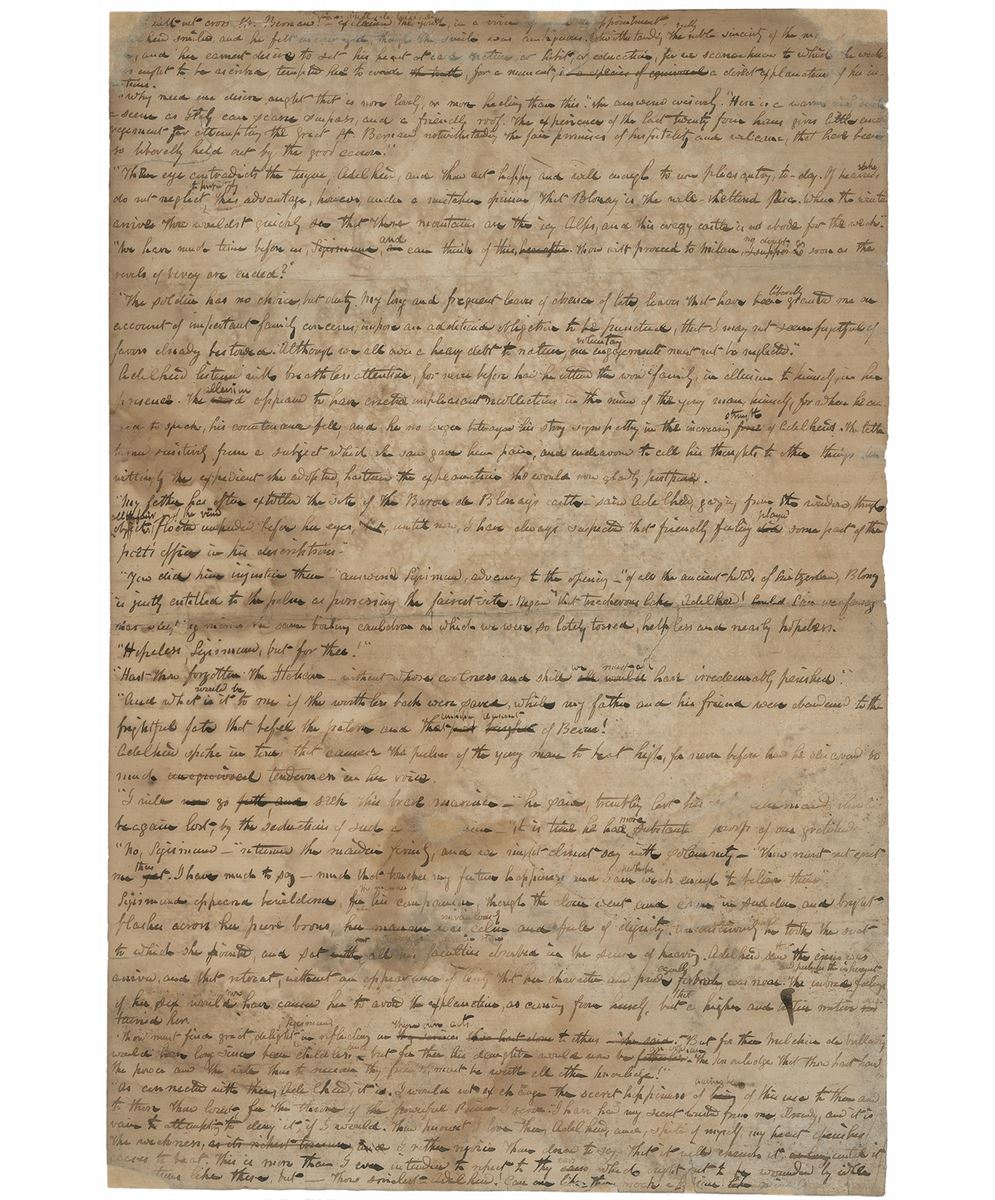 will not cross St. Bernard - exclaimed the youth, in a voice appointment
smiled, and he felt although the smile was ambiguous. Notwithstanding the noble sincerity of the
and her earnest desire to set his heart at ease nature or habit, or education, for we scarce know to which the weakness
ought to be ascribed, tempted her to avoid the truth, for a moment, a direct explanation of her in-
tentions.
"Why need one desire aught that is more lovely, or more healing than this." she answered evasively. "Here is a warm air, such
a scene as Italy can scarce surpass, and a friendly roof. The experience of the last twenty four hours gives little encour-
agement for attempting the great St. Bernard notwithstanding the fair promises of hospitality and welcome, that have been
so liberally held out by the good
"Thine eye contradicts thy tongue, Adelheid, and thou art happy and well enough to use pleasantry, to-day. For heaven's sake
do not neglect to profit by this advantage, however, under a mistaken opinion that Blonay is the well-sheltered Pisa. When the winter
arrives thou wouldst quickly see that these mountains are the icy Alps, and this crazy castle
"We have much time before us, Sigismund, and can think of this, hereafter. Thou wilt proceed to Milan, no doubt, so soon as the
revels of Vevey are ended?"
"The soldier has no choice, but duty. My long and frequent leaves of absence of late, leaves that have been liberally granted me on
account of important family concerns, impose an additional obligation to be punctual, that I may not seem forgetful of
favors already bestowed. Although we all owe a heavy debt to nature, our voluntary engagements must not be neglected."
Adelheid listened with breathless attention, for never before had he uttered the word 'family,' in allusion to himself, in her
presence. The allusion appeared to have created unpleasant recollections in the mind of the young man, himself, for when he ceas-
ed to speak, his countenance fell and he no longer betrayed his strong sympathy in the increasing strength of Adelheid. The latter
turned sensitively from a subject which she saw gave him pain, and endeavored to call his thoughts to other things. Un-
wittingly the expedient she adopted hastened the explanation she would now gladly postpone.
"My father has often extolled the site of the Baron de Blonay's castle - said Adelheid, gazing from the window, though
all the fair objects of the view floated unheeded before her eyes, but, until now, I have always suspected that friendly feeling played some part of the
poet's office in his descriptions -"
"You did him injustice then - "answered Sigismund, advancing to the opening - "of all the ancient holds of Switzerland, Blonay
is justly entitled to the palm as possessing the fairest site. Regard that treacherous lake, Adelheid! Can we fancy
that sleeping mirror the same boiling cauldron on which we were so lately tossed, helpless and nearly hopeless.
"Hopeless Sigismund, but for thee!"
"Hast thou forgotten the Italian - without whose coolness and skill we must all have irredeemably perished"
"And what would be it to me if the worthless bark were saved, while my father and his friend were abandoned to the
frightful fate that befel the patron and that unhappy peasant of Berne!"
Adelheid spoke in tones that caused the pulses of the young man to beat high, for never before had he discovered so
much unequivocal tenderness in her voice.
"I will go seek this brave mariner -" he said, trembling lest his command should
be again lost by the seductions of such a - "it is time he had more substantial proofs of our gratitude
"No, Sigismund - "returned the maiden firmly, and we might almost say with solemnity - "Thou must not quit
me yet. I have much to say - much that touches my future happiness and I am perhaps weak enough to believe thine"
Sigismund appeared bewildered, for his companion, though the color went and came in sudden and bright
flashes across her pure brows, was calm and full of dignity. Unconsciously he took the seat
to which she pointed, and sat with all his faculties absorbed in the sense of hearing. Adelheid saw that the crisis was
arrived, and that retreat, without an appearance of levity that her character and pride equally forbade, was near. The inbred feelings
of her sex would now have caused her to avoid the explanation, as coming from herself, but that a higher and motive sus-
tained her.
"Thou must find great delight, Sigismund, in reflecting on thine own acts to others - But for thee Melchior de Willading
would long since been childless, - but for thee his daughter would now be an orphan. The knowledge that thou hast had
the power and the will thus to succour thy friends, must be worth all other knowledge!"
"As connected with thee, Adelheid, it is. I would not exchange the secret happiness of having been of this use to thee and
to those thou lovest for the throne of the powerful Prince I serve. I have had my secret wrested from me, already, and it is
vain to attempt to deny it if I would. Thou knowest I love thee, Adelheid, and, in spite of myself, my heart cherishes
the weakness, I rather rejoice than dread to say that it will cherish it until it
ceases to beat. This is more than I ever intended to repeat to thy ears which ought not to be wounded by idle
like these, but - Thou smilest - Adelheid! Can one like thee mock